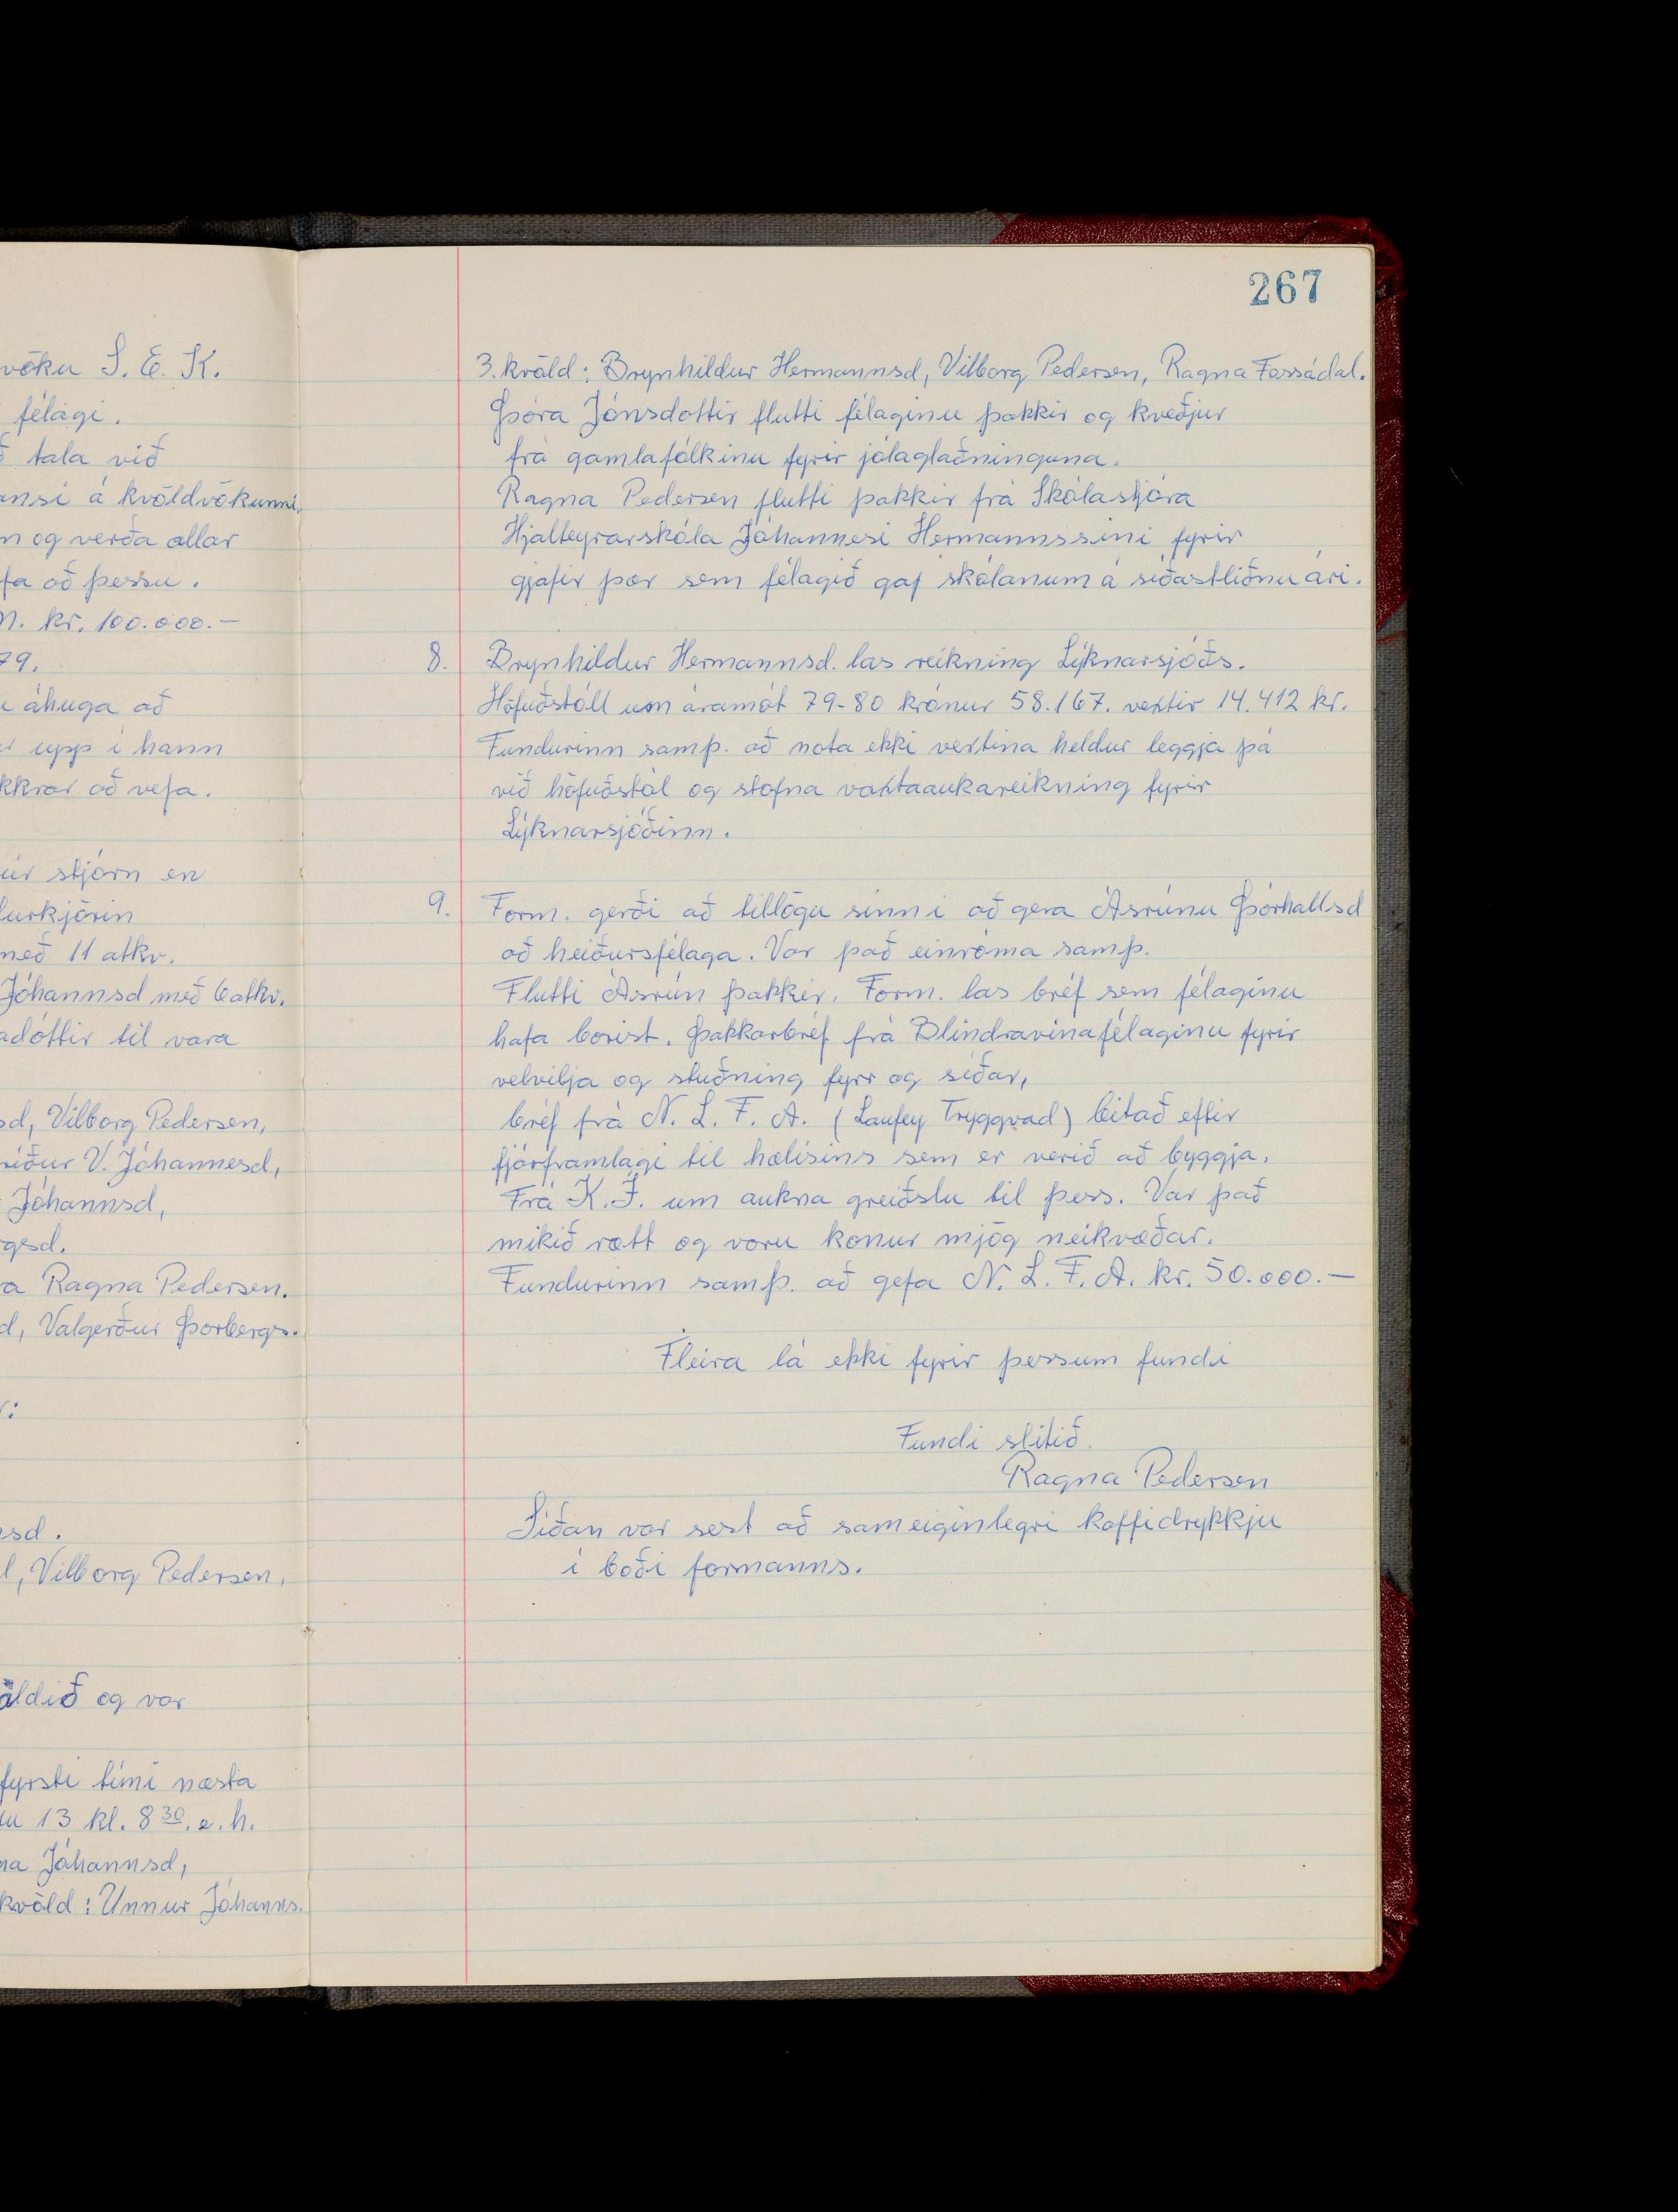 vöku S. E. K.
félagi.
tala við
ansi á kvöldvökunni.
n og verða allar
fa að þessu.
n. kr. 100.000.-
79.
áhuga að
upp í hann
kkrar að vefa.
úr stjórn en
urkjörin
með 11 atkv.
Jóhannsd með 6 atkv.
adóttir til vara
sd, Vilborg Pedersen,
ríður V. Jóhannesd,
Jóhannsd,
gsd.
a Ragna Pedersen.
d, Valgerður Þorbergs.
r:
esd.
l, Vilborg Pedersen,
öldið og var
fyrsti tími næsta
u 13 kl. 8 30. e.h.
na Jóhannsd,
kvöld: Unnur Jóhanns.
267
3. kvöld: Brynhildur Hermannsd, Vilborg Pedersen, Ragna Fossádal.
Þóra Jónsdóttir flutti félaginu þakkir og kveðjur
frá gamlafólkinu fyrir jólaglaðninguna.
Ragna Pedersen flutti þakkir frá Skólastjóra
Hjalteyrarskóla Jóhannesi Hermannssini fyrir
gjafir þær sem félagið gaf skólanum á síðastliðnu ári.
8. Brynhildur Hermannsd. las reikning Líknarsjóðs.
Höfuðstóll um áramót 79-80 krónur 58.167. vextir 14.412 kr.
Fundurinn samþ. að nota ekki vextina heldur leggja þá
við höfuðstól og stofna vaxtaaukareikning fyrir
Lýknarsjóðinn.
9. Form. gerði að tillögu sinni að gera Ásrúnu Þórhallsd
að heiðursfélaga. Var það einróma samþ.
Flutti Ásrún þakkir. Form. las bréf sem félaginu
hafa borist. Þakkarbréf frá Blindravinafélaginu fyrir
velvilja og stuðning fyrr og síðar,
bréf frá N. L. F. A. (Laufey Tryggvad) leitað eftir
fjárframlagi til hælisins sem er verið að byggja.
Frá K.F. um aukna greiðslu til þess. Var það
mikið rætt og voru konur mjög neikvæðar.
Fundurinn samþ. að gefa N. L. F. A. kr. 50.000.-
Fleira lá ekki fyrir þessum fundi
Fundi slitið.
Ragna Pedersen
Síðan var sest að sameiginlegri kaffidrykkju
í boði formanns.